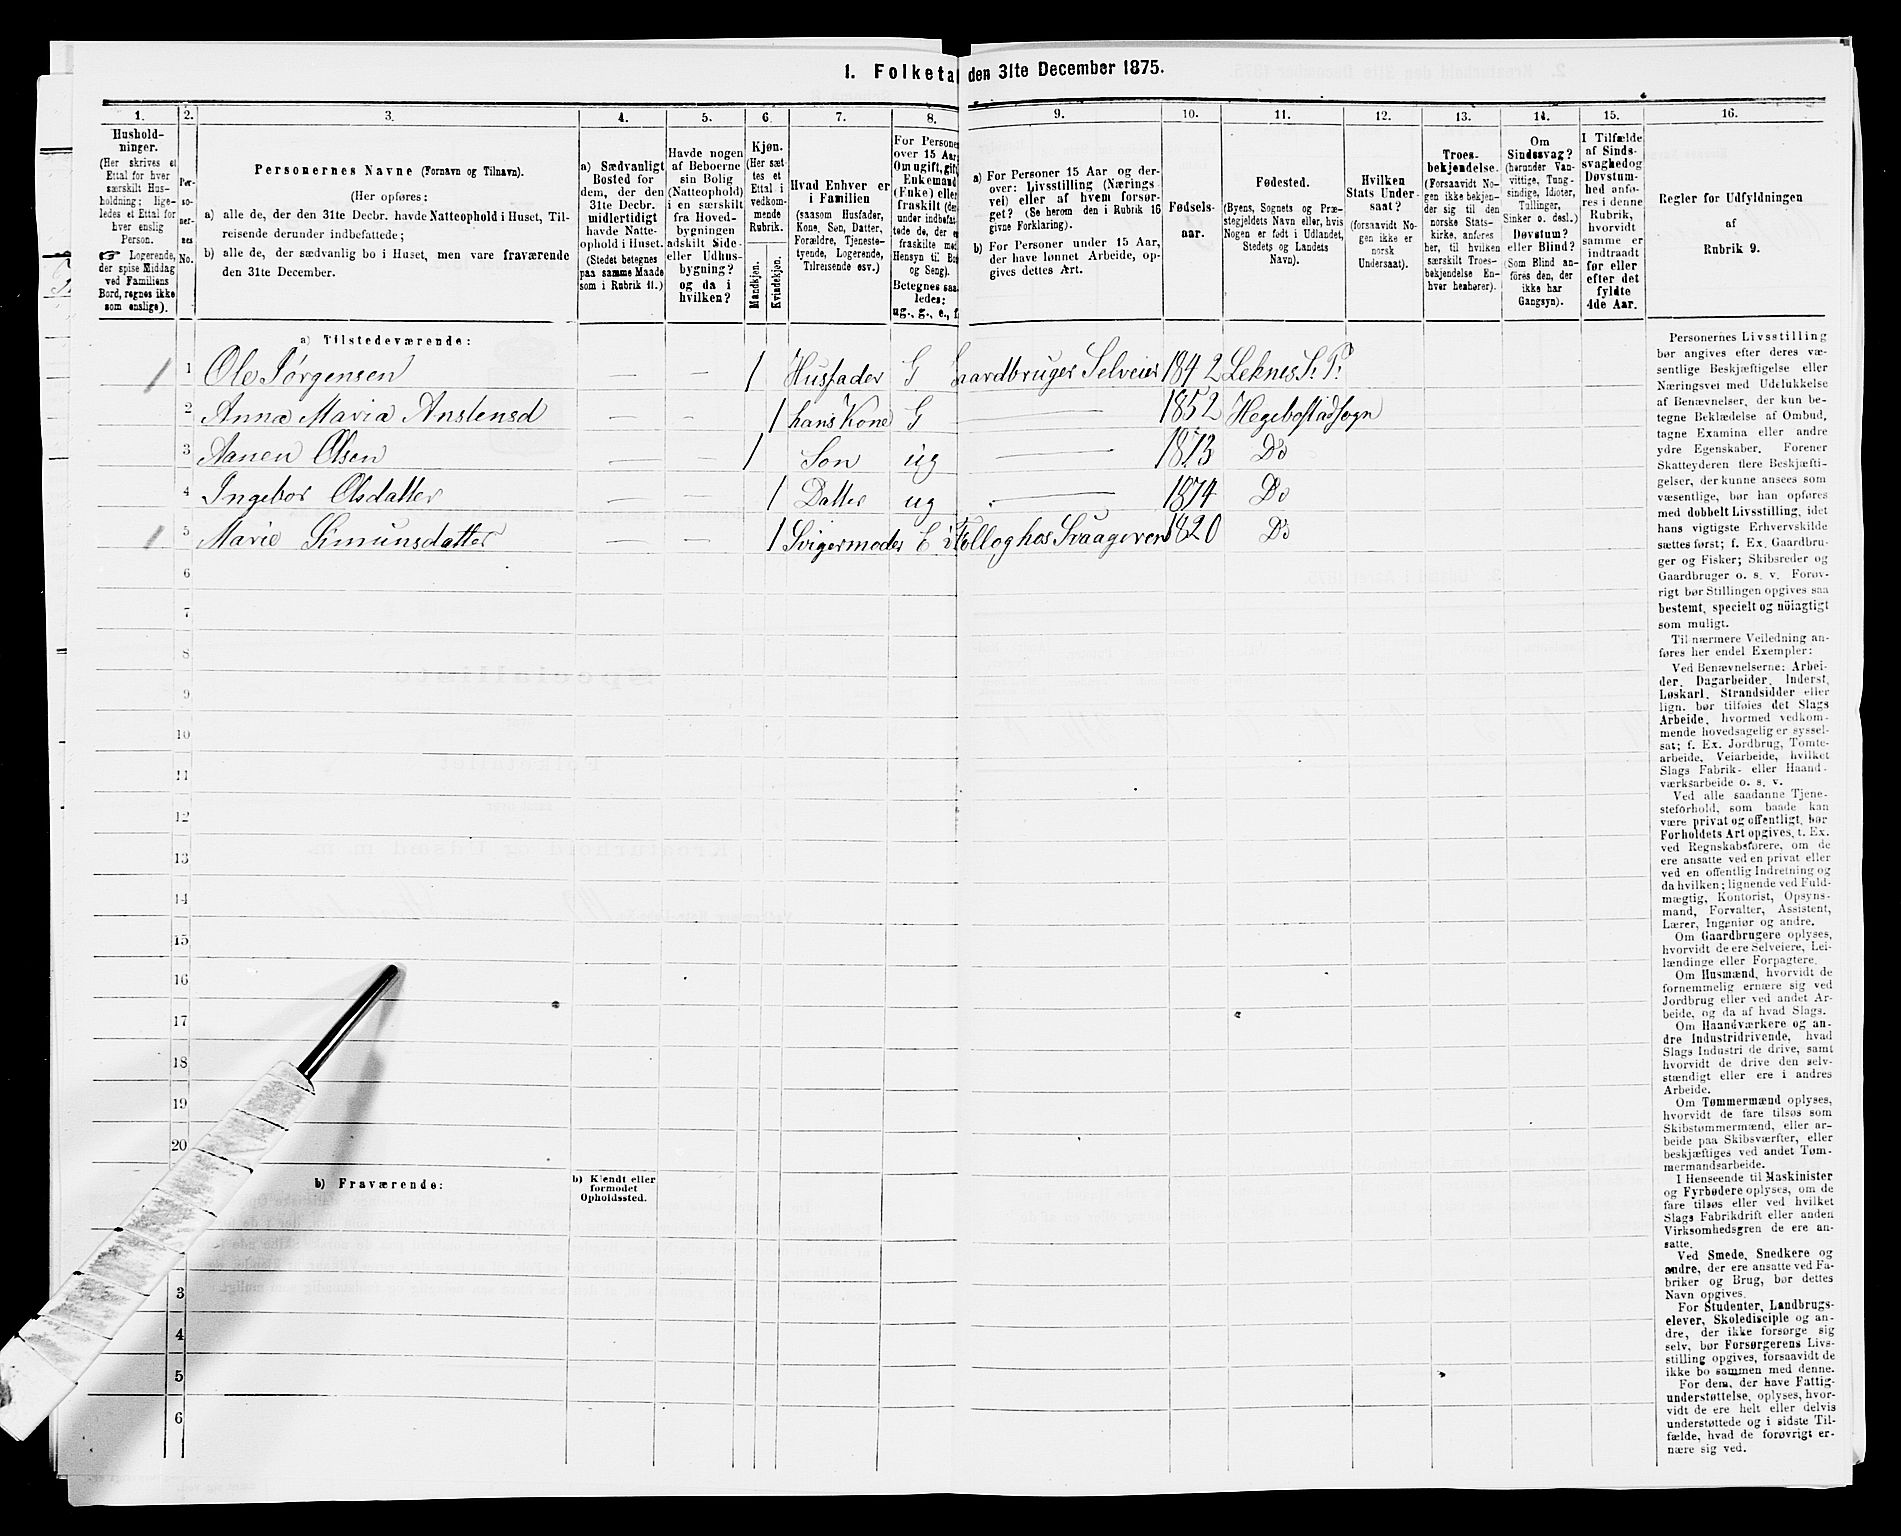 1. Folketa den 31te December 1875.
1. 2. 3. 4. 5. 6. 7. 8. 9. 10. 11. 12. 13. 14. 15. 16.
Hushold-
ninger.
(Her skrives et
Ettal for hver
særskilt Hus-
holdning; lige-
ledes et Ettal for
hver enslig
Person.
☞ Logerende,
der spise Middag
ved Familiens
Bord, regnes ikke
som enslige).
Per-
so-
ner-
nes
No.
Personernes Navne (Fornavn og Tilnavn).
(Her opføres:
a) alle de, der den 31te Decbr. havde Natteophold i Huset, Til-
reisende derunder indbefattede;
b) alle de, der sædvanlig bo i Huset, men vare fraværende
den 31te December.
a) Sædvanligt
Bosted for
dem, der den
31te Decbr.
midlertidigt
havde Natte-
ophold i Huset.
(Stedet betegnes
paa samme Maade
som i Rubrik 11.)
Havde nogen
af Beboerne
sin Bolig
(Natteophold)
i en særskilt
fra Hoved-
bygningen
adskilt Side-
eller Udhus-
bygning?
og da i
hvilken?
Kjøn.
(Her sæt-
tes et
Ettal i
vedkom-
mende
Rubrik.
Mandkjøn.
Kvindekjøn.
Hvad Enhver er
i Familien
(saasom Husfader,
Kone, Søn, Datter,
Forældre, Tjeneste-
tyende, Logerende,
Tilreisende osv.)
For Persone
over 15 Aar
Om ugift, gif
Enkemand
(Enke) elle
fraskilt (de
under indbefa
tede de, der e
fraskilte med
Hensyn til Bo
og Seng).
Betegnes saa
ledes:
ug., g., e., f.
a) For Personer 15 Aar og der-
over: Livsstilling (Nærings
vei) eller af hvem forsør-
get? (Se herom den i Rubrik 16
givne Forklaring).
b) For Personer under 15 Aar,
der have lønnet Arbeide, op-
gives dettes Art.
Fødsels-
aar.
Fødested.
(Byens, Sognets og Præ-
stegjeldets Navn eller, hvis
Nogen er født i Udlandet,
Stedets og Landets
Navn).
Hvilken
Stats Under-
saat?
(forsaavidt No-
gen ikke er
norsk
Undersaat).
Troes-
bekjendelse.
(Forsaavidt No-
gen ikke bekjen-
der sig til den
norske Stats-
kirke, anføres
her, til hvilken
særskilt Troes-
bekjendelse En-
hver henhører).
Om
Sindssvag?
(herunder Van-
vittige, Tung-
sindige, Idioter,
Tullinger,
Sinker o. desl.)
Døvstum?
eller Blind?
(Som Blind an-
føres den, der
ikke har
Gangsyn).
I Tilfælde
af Sinds-
svaghed og
Døvstum-
hed anfø-
res i denne
Rubrik,
hvorvidt
samme er
indtraadt
før eller
efter det
fyldte
4de Aar.
Regler for Udfyldningen
af
Rubrik 9.
a) Tilstedeværende:
1 1 Ole Jørgensen — — 1 Husfader G Gaardbruger Selveier 1842 Leknes S. P.
2 Anna Maria Anstensd 1 hans Kone G — 1852 Hegebostadsogn
3 Aanen Olsen — — 1 Søn ug — 1873 Do
4 Ingebor Olsdatter — — 1 Datter ug — 1874 Do
1 5 Marie Simunsdatter — — 1 Svigermoder E Follog hos Svaageren 1820 Do
6
7
8
9
10
11
12
13
14
15
16
17
18
19
20
b) Fraværende:
b) Kjendt eller
formodet
Opholdssted.
3
4
5
6
Personernes Livsstilling
bør angives efter deres væ-
sentlige Beskjæftigelse eller
Næringsvei med Udelukkelse
af Benævnelser, der kun be-
tegne Beklædelse af Ombud,
tagne Examina eller andre
ydre Egenskaber. Forener
Skatteyderen flere Beskjæfti-
gelser, der kunne ansees som
væsentlige, bør han opføres
med dobbelt Livsstilling, idet
hans vigtigste Erhvervskilde
sættes først; f. Ex. Gaardbru-
ger og Fisker; Skibsreder og
Gaardbruger o. s. v. Forøv-
rigt bør Stillingen opgives saa
bestemt, specielt og nöiagtigt
som muligt.
Til nærmere Veiledning an-
føres her endel Exempler:
Ved Benævnelserne: Arbei-
der, Dagarbeider, Inderst,
Løskarl, Strandsidder eller
lign. bør tilføies det Slags
Arbeide, hvormed vedkom-
mende hovedsagelig er syssel-
sat; f. Ex. Jordbrug, Tomte-
arbeide, Veiarbeide, hvilket
Slags Fabrik- eller Haand-
værksarbeide o. s. v.
Ved alle saadanne Tjene-
steforhold, som baade kan
være privat og offentligt, bør
Forholdets Art opgives, t. Ex.
ved Regnskabsførere, om de
ere ansatte ved en privat eller
ved en offentlig Indretning og
da hvilken; lignende ved Fuld-
mægtig, Kontorist, Opsyns-
mand, Forvalter, Assistent,
Lærer, Ingeniør og andre.
Om Gaardbrugere oplyses,
hvorvidt de ere Selveiere, Lei-
lændinge eller Forpagtere.
Om Husmænd, hvorvidt de
fornemmelig ernære sig ved
Jordbrug eller ved andet Ar-
beide, og da af hvad Slags.
Om Haandværkere og an-
dre Industridrivende, hvad
Slags Industri de drive, samt
hvorvidt de drive den selv-
stændigt eller ere i andres
Arbeide.
Om Tømmermænd oplyses,
hvorvidt de fare tilsøs som
Skibstømmermænd, eller ar-
beide paa Skibsværfter, eller
beskjæftiges ved andet Tøm-
mermandsarbeide.
I Henseende til Maskinister
og Fyrbødere oplyses, om de
fare tilsøs eller ved hvilket
Slags Fabrikdrift eller anden
Virksomhedsgren de ere an-
satte.
Ved Smede, Snedkere og
andre, der ere ansatte ved Fa-
briker og Brug, bør dettes
Navn opgives.
For Studenter, Landbrugs-
elever, Skoledisciple og an-
dre, der ikke forsørge sig
selv, bør Forsørgerens Livs-
stilling opgives, forsaavidt de
ikke bo sammen med denne.
For dem, der have Fattig-
understøttelse, oplyses, hvor-
vidt de ere helt eller delvis
understøttede og i sidste Til-
fælde, hvad de forøvrigt er-
nære sig ved.